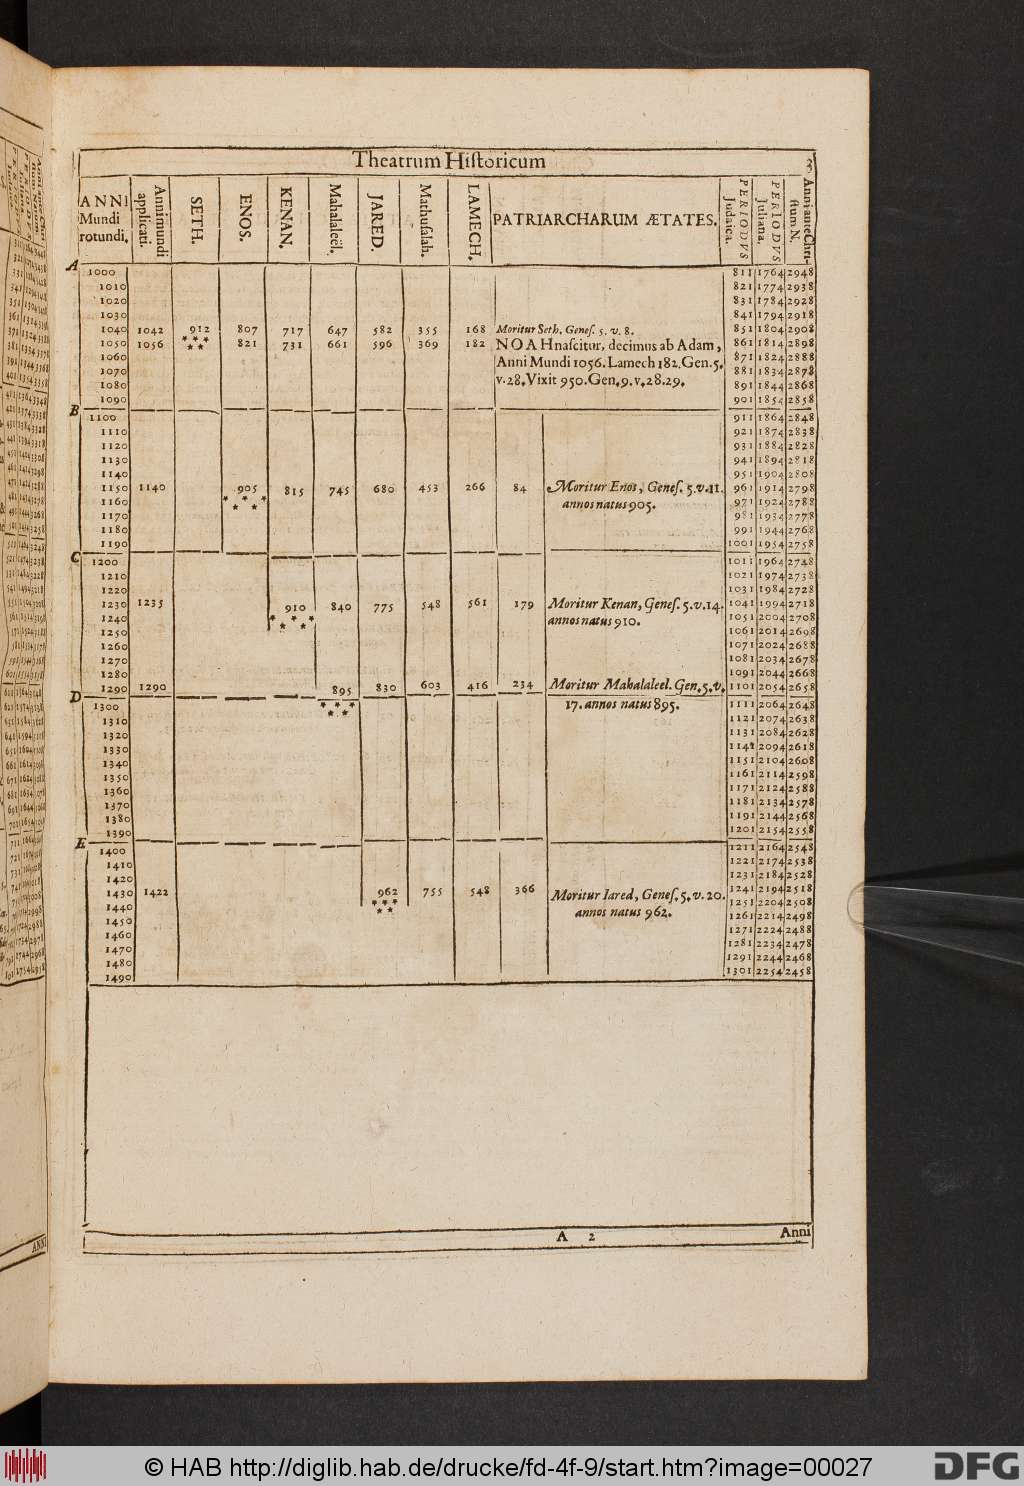 Theatrum Historicum 3
ANNI Mundi rotundi. Anni mundi applicati. SETH. ENOS. KENAN. Mahalaleël. JARED. Mathusalah. LAMECH. PATRIARCHARUM ÆTATES. PERIODVS Judaica. PERIODVS Juliana. Anni ante Christum N.
A
1000 811 1764 2948
1010 821 1774 2938
1020 831 1784 2928
1030 841 1794 2918
1040 1042 912 807 717 647 582 355 168 Moritur Seth, Genes. 5. v. 8. 851 1804 2908
1050 1056 *** ** 821 731 661 596 369 182 NOAH nascitur, decimus ab Adam, 861 1814 2898
1060 Anni Mundi 1056. Lamech 182. Gen. 5. 871 1824 2888
1070 v. 28. Vixit 950. Gen. 9. v. 28. 29. 881 1834 2878
1080 891 1844 2868
1090 901 1854 2858
B
1100 911 1864 2848
1110 921 1874 2838
1120 931 1884 2828
1130 941 1894 2818
1140 951 1904 2808
1150 1140 905 815 745 680 453 266 84 Moritur Enos, Genes. 5. v. 11. 961 1914 2798
1160 * * * * * annos natus 905. 971 1924 2788
1170 981 1934 2778
1180 991 1944 2768
1190 1001 1954 2758
C
1200 1011 1964 2748
1210 1021 1974 2738
1220 1031 1984 2728
1230 1235 910 840 775 548 561 179 Moritur Kenan, Genes. 5. v. 14. 1041 1994 2718
1240 * * * * * annos natus 910. 1051 2004 2708
1250 1061 2014 2698
1260 1071 2024 2688
1270 1081 2034 2678
1280 1091 2044 2668
1290 1290 895 830 603 416 234 Moritur Mahalaleel. Gen. 5. v. 1101 2054 2658
D
1300 *** ** 17. annos natus 895. 1111 2064 2648
1310 1121 2074 2638
1320 1131 2084 2628
1330 1141 2094 2618
1340 1151 2104 2608
1350 1161 2114 2598
1360 1171 2124 2588
1370 1181 2134 2578
1380 1191 2144 2568
1390 1201 2154 2558
E
1400 1211 2164 2548
1410 1221 2174 2538
1420 1231 2184 2528
1430 1422 962 755 548 366 Moritur Iared, Genes. 5. v. 20. 1241 2194 2518
1440 *** ** annos natus 962. 1251 2204 2508
1450 1261 2214 2498
1460 1271 2224 2488
1470 1281 2234 2478
1480 1291 2244 2468
1490 1301 2254 2458
A 2 Anni
© HAB http://diglib.hab.de/drucke/fd-4f-9/start.htm?image=00027
DFG